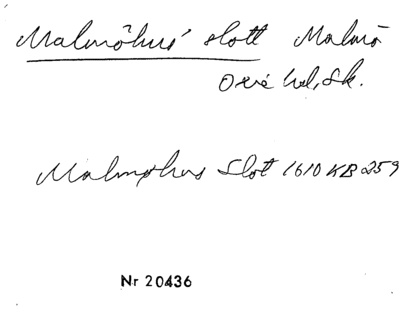 Malmöhus' slott Malmö
Oxie hd, Sk.
Malmøhus Slot 1610 KB 259
Nr 20436